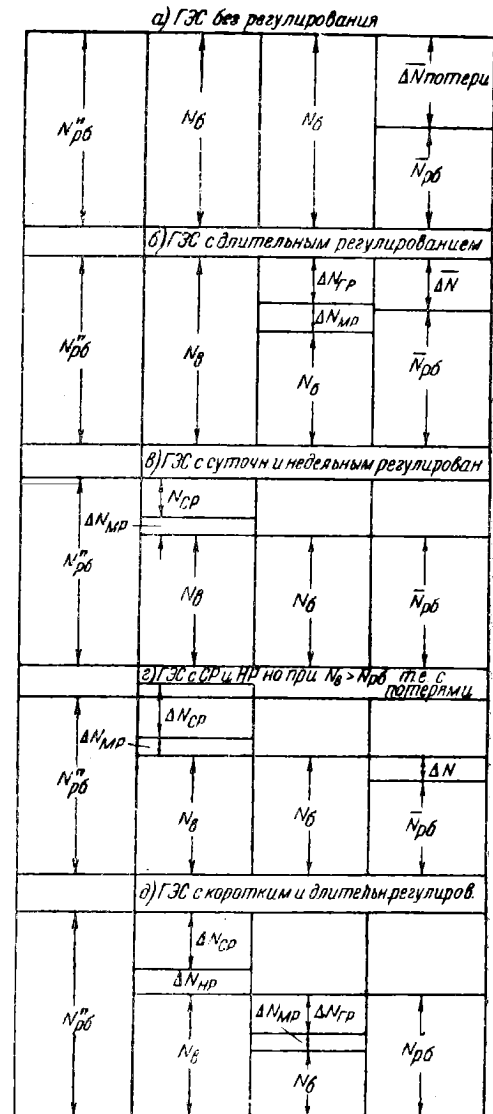 а) ГЭС без регулирования
N"рб Nб Nб ΔN̅ потери
N̅рб
б) ГЭС с длительным регулированием
N"рб Nв ΔNГР ΔN̅
ΔNМР
Nб N̅рб
в) ГЭС с суточн и недельным регулирован
N"рб NСР
ΔNМР
Nв Nб N̅рб
г) ГЭС с СР и НР но при Nв > Nрб т.е. с
потерями
N"рб ΔNСР
ΔNМР
ΔN
Nв Nб N̅рб
д) ГЭС с коротким и длительн. регулиров.
N"рб ΔNСР
ΔNНР
Nв ΔNМР ΔNГР Nрб
Nб